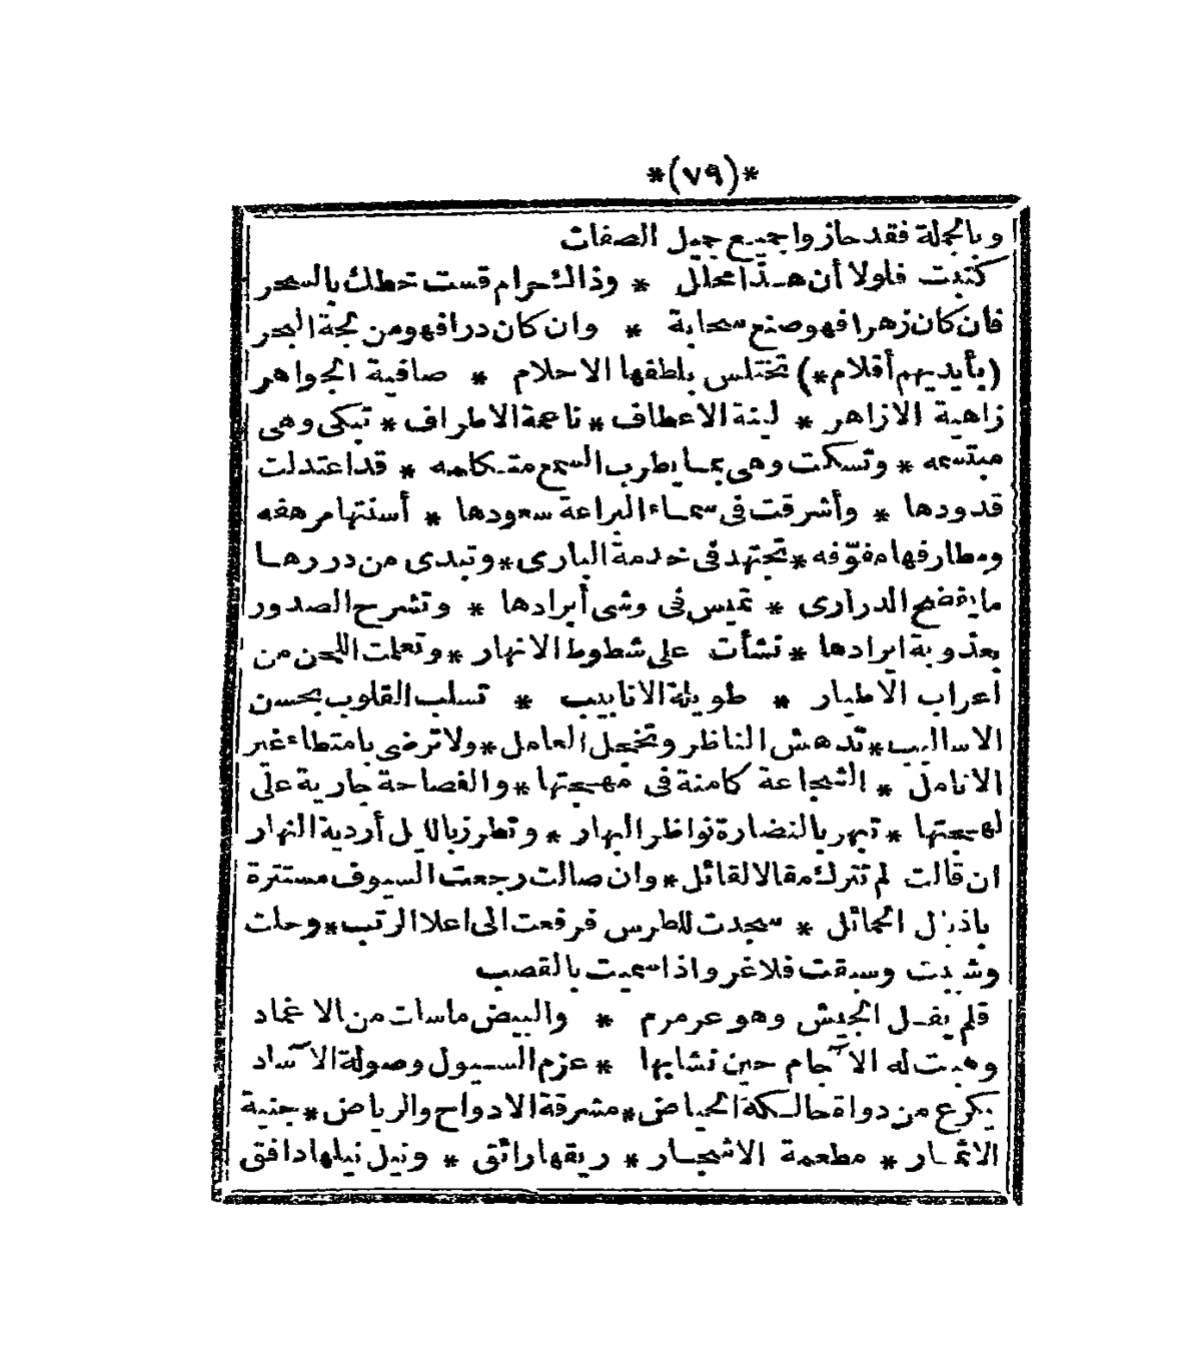 *(٧٩)*
وبالجملة فقد حازوا جميع جميل الصفات
كتبت فلولا أن هـذا محلل * وذاك حرام قست خطك بالسحر
فان كان زهرا فهو صنع سحابة * وان كان درا فهو من لجة البحر
(بأيديهم أقلام*) تختلس بلطفها الاحلام * صافية الجواهر
زاهية الازاهر * لينة الاعطاف * ناعمة الاطراف * تبكى وهى
مبتسمه * وتسكت وهى بمـا يطرب السمع متـكلمه * قد اعتدلت
قدودها * وأشرقت فى سمـاء البراعة سعودها * أسنتها مرهفه
ومطارفها مفوّفه * تجتهد فى خدمة البارى * وتبدى من دررهـا
ما يفضح الدرارى * تميس فى وشى أبرادها * وتشرح الصدور
بعذوبة ايرادها * نشأت على شطوط الانهار * وتعلمت اللحن من
أعراب الاطيار * طويلة الانابيب * تسلب القلوب بحسن
الاساليب * تدهش الناظر وتخجل العامل * ولا ترضى بامتطاء غير
الانامل * الشجاعة كامنة فى مهجتها * والفصاحة جارية على
لهجتها * تبهر بالنضارة نواظر البهار * وتطرز بالليل أردية النهار
ان قالت لم تترك مقالا لقائل * وان صالت رجعت السيوف مستترة
باذيال الحمائل * سجدت للطرس فرفعت الى اعلا الرتب * وحلت
وشيبت وسبقت فلا غروا اذا سميت بالقصب
قلم يفـل الجيش وهو عرمرم * والبيض ماسات من الاغماد
وهبت له الآجام حين نشابها * عزم السـيول وصولة الآساد
يكرع من دواة حالـكة الحياض * مشرقة الادواح والرياض * جنية
الاثمـار * مطعمة الاشجـار * ريقها رائق * ونيل نيلها دافق